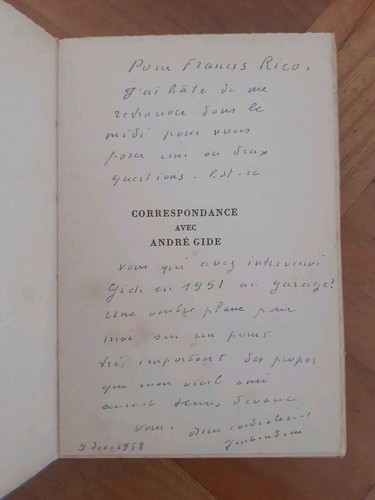 Pour Francis Rico,
J'ai hâte de me
retrouver dans le
midi pour vous
poser une ou deux
questions. Est-ce
CORRESPONDANCE
AVEC
ANDRÉ GIDE
vous qui avez interviewé
Gide en 1951 au garage?
Une ombre plane pour
moi sur un point
très important des propos
que mon vieil ami
aurait tenus devant
vous. Bien cordialement
9 dec. 1958